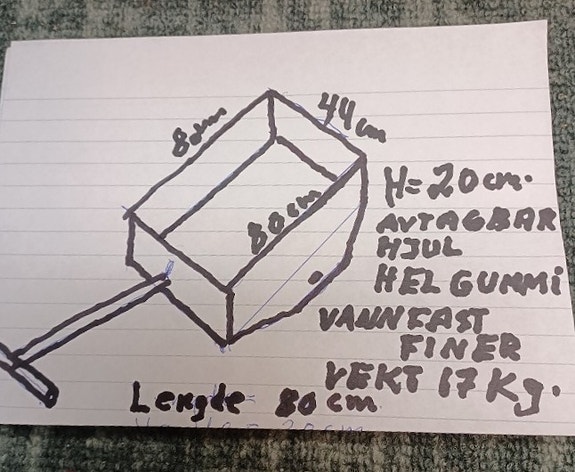 80cm
44
cm
80cm
H=20cm.
AVTAGBAR
HJUL
HEL GUMMI
VANNFAST
FINER
VEKT 17Kg.
Lengde 80 cm